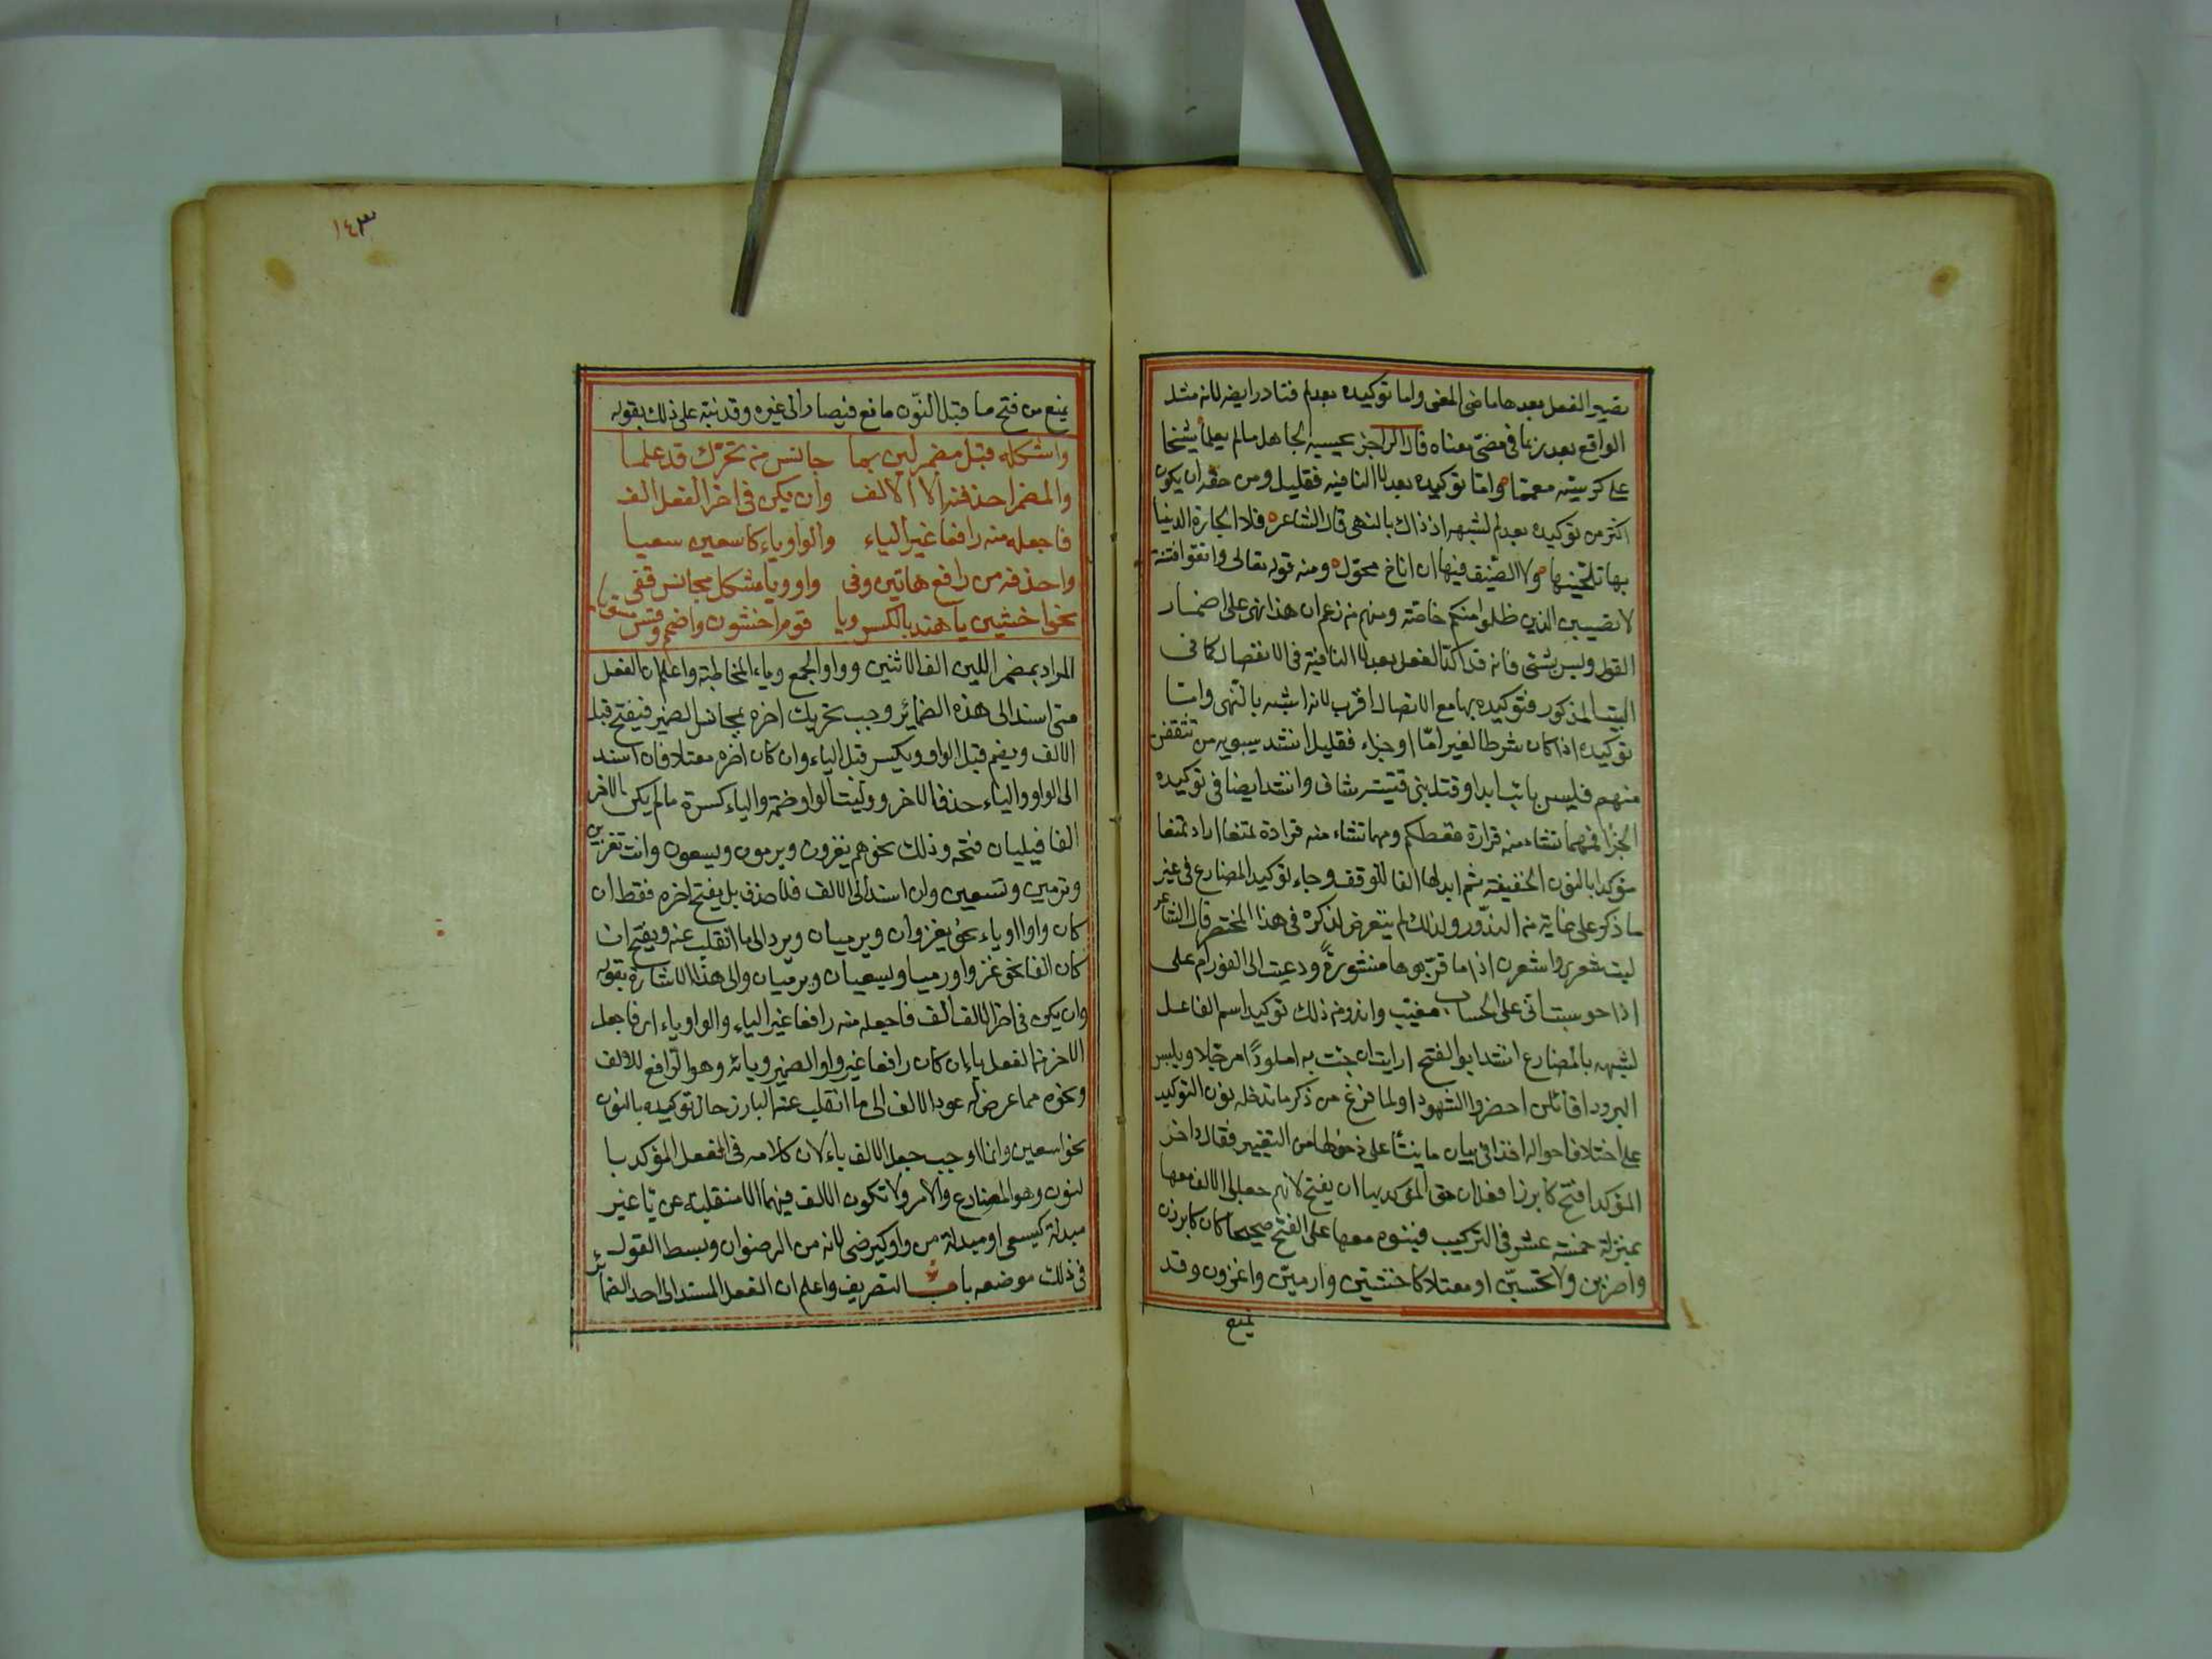 يصير الفعل بعدها ماضي المعنى واما توكيده بعد لم فنادر ايضه لانه مثل
الواقع بعد ربما في مضيّ معناه قال الراجز يحسبه الجاهل مالم يعلما شيخا
على كرسيه معمما واما توكيده بعد لا النافيه فقليل ومن حقه ان يكون
اكثر من توكيده بعد لم لشبهه اذ ذاك بالنهى قال الشاعر فلا الجارة الدنيا
بها تلحينها ولا الضيف فيها ان اناخ محوّل ومنه قوله تعالى واتقوا فتنة
لا تصيبن الذين ظلموا منكم خاصّة ومنهم من زعم ان هذا نهى على اضمار
القول وليس بشئ فانه قد اكد الفعل بعد لا النافية في الانفصال كما في
البيت المذكور فتوكيده بها مع الاتصال اقرب لانه اشبه بالنهى واما
توكيده اذا كان شرطا لغير امّا او جزاء فقليل انشد سيبويه من تثقفن
منهم فليس بائب ابدا وقتل بني قتيبة شاف وانشد ايضا في توكيده
الجزا فمهما تشا منه فزارة تعطكم ومهما تشاء منه فزارة تمنعا اراد تمنعا
مؤكدا بالنون الخفيفة ثم ابدلها الفا للوقف وجاء توكيد المضارع في غير
ما ذكر على غاية من الندور ولذلك لم يتعرض لذكره في هذا المختصر قال الشاعر
ليت شعرى واشعرن اذا ما قربوها منشورةً ودعيت الى الفوزام على
اذا حوسبت انى على الحساب مقيت واندر من ذلك توكيد اسم الفاعل
لشبهه بالمضارع انشد ابو الفتح ارايت ان جئت به املودًا مرجلا ويلبس
البرودا اقائلن احضروا الشهودا ولما فرغ من ذكر ما تدخله نون التوكيد
على اختلاف احواله اخذ في بيان ما ينشأ على دخولها من التغيير فقال واخر
المؤكد افتح كابرزا فعلان حق المؤكد بها ان يفتح لانهم جعلوا الالف معها
بمنزلة خمسة عشر في التركيب فبنوه معها على الفتح صحيحا كان كابرزن
واضربن ولا تحسبنّ او معتلا كاخشين وارمينّ واغزون وقد
يمنع
١٤٣
يمنع من فتح ما قبل النّون مانع فيصار الى غيره وقد نبّه على ذلك بقوله
واشكله قبل مضمر لين بما جانس من تحرّك قد علما
والمضمر احذفنه الا الالف وان يكن في اخر الفعل الف
فاجعله منه رافعا غير الياء والواو ياء كاسعين سعيا
واحذفه من رافع هاتين وفى واو ويا مشكل مجانس قفى
نحو اخشين يا هند بالكسر ويا قوم اخشون واضمم وقس مستويا
المراد بمضمر اللين الف الاثنين وواو الجمع وياء المخاطبة واعلم ان الفعل
متى اسند الى هذه الضمائر وجب تحريك اخره بمجانس الضمير فيفتح قبل
الالف ويضم قبل الواو ويكسر قبل الياء وان كان اخره معتلا فان اسند
الى الواو والياء حذف الاخر ووليت الواو ضمة والياء كسرة مالم يكن الاخر
الفا فيليان فتحه وذلك نحو هم يغزون ويرمون ويسعون وانت تغزين
وترمين وتسعين وان اسند الى الالف فلا حذف بل يفتح اخره فقط ان
كان واوا او ياء نحو يغزوان ويرميان ويرد الى ما انقلب عنه ويفتح ان
كان الفا نحو غزوا ورميا ويسعيان ويرميان والى هذا الاشارة بقوله
وان يكن في اخر الالف الف فاجعله منه رافعا غير الياء والواو ياء اى فاجعل
الاخر من الفعل ياء ان كان رافعا غير واو الضمير ويائه وهو الرافع للالف
ونحوه مما عرض له عود الالف الى ما انقلب عنه البارز حال توكيده بالنون
نحو اسعين وانما اوجب جعل الالف ياء لان كلامه في الفعل المؤكد با
لنون وهو المضارع والامر ولا تكون الالف فيهما الا منقلبة عن يا غير
مبدلة كيسعى او مبدلة من واو كيرضى لانه من الرضوان وبسط القول
في ذلك موضعه باب التصريف واعلم ان الفعل المسند الى احد الضمائر